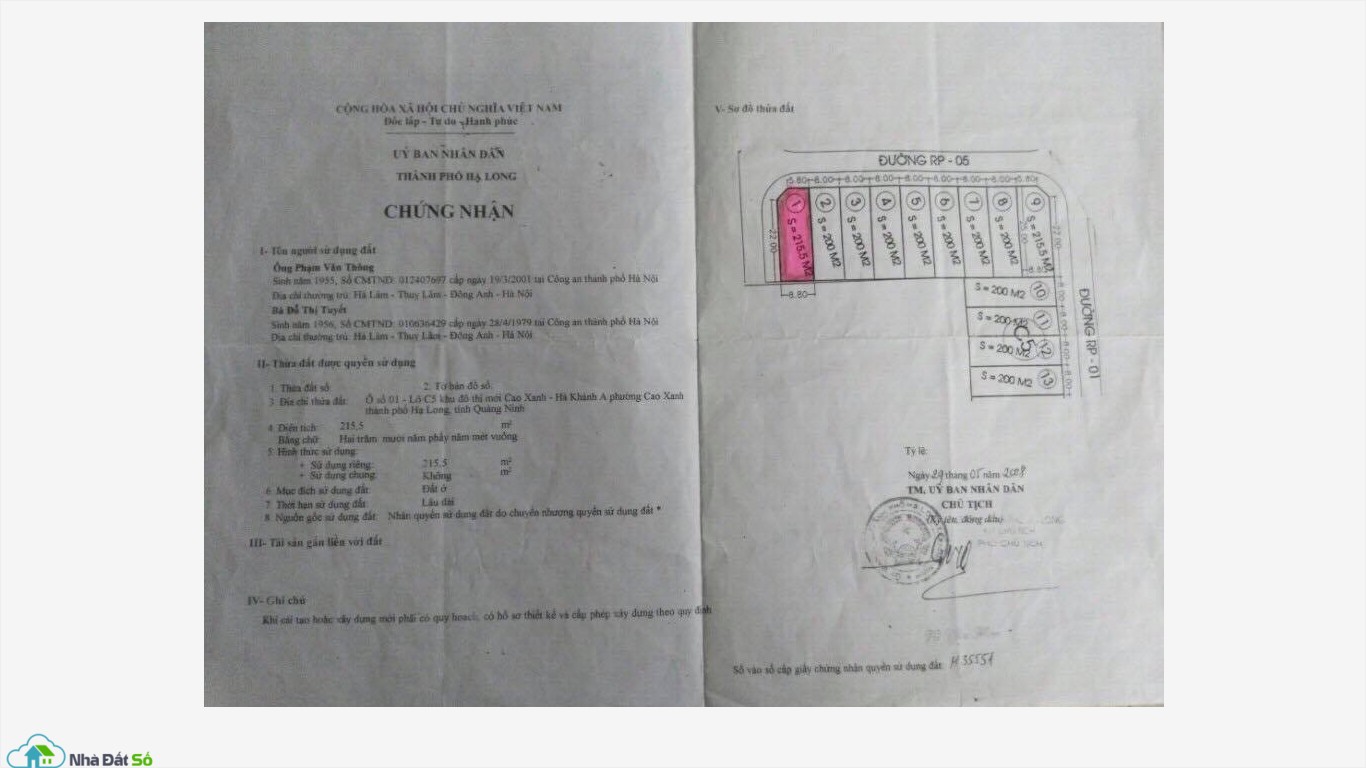 CỘNG HÒA XÃ HỘI CHỦ NGHĨA VIỆT NAM
Độc lập - Tự do - Hạnh phúc
UỶ BAN NHÂN DÂN
THÀNH PHỐ HẠ LONG
CHỨNG NHẬN
I- Tên người sử dụng đất
Ông Phạm Văn Thông
Sinh năm 1955, Số CMTND: 012407697 cấp ngày 19/3/2001 tại Công an thành phố Hà Nội
Địa chỉ thường trú: Hà Lâm - Thuỵ Lâm - Đông Anh - Hà Nội
Bà Đỗ Thị Tuyết
Sinh năm 1956, Số CMTND: 010636429 cấp ngày 28/4/1979 tại Công an thành phố Hà Nội
Địa chỉ thường trú: Hà Lâm - Thuỵ Lâm - Đông Anh - Hà Nội
II- Thửa đất được quyền sử dụng
1. Thửa đất số: 2. Tờ bản đồ số:
3. Địa chỉ thửa đất: Ô số 01 - Lô C5 khu đô thị mới Cao Xanh - Hà Khánh A phường Cao Xanh
thành phố Hạ Long, tỉnh Quảng Ninh
4. Diện tích: 215,5 m²
Bằng chữ: Hai trăm mười năm phẩy năm mét vuông
5. Hình thức sử dụng:
+ Sử dụng riêng: 215.5 m²
+ Sử dụng chung: Không m²
6. Mục đích sử dụng đất: Đất ở
7. Thời hạn sử dụng đất: Lâu dài
8. Nguồn gốc sử dụng đất: Nhận quyền sử dụng đất do chuyển nhượng quyền sử dụng đất *
III- Tài sản gắn liền với đất
IV- Ghi chú
Khi cải tạo hoặc xây dựng mới phải có quy hoạch, có hồ sơ thiết kế và cấp phép xây dựng theo quy định
V- Sơ đồ thửa đất
ĐƯỜNG RP - 05
5.80 8.00 8.00 8.00 8.00 8.00 8.00 8.00 5.80
1 S = 215.5 M2
2 S = 200 M2
3 S = 200 M2
4 S = 200 M2
5 S = 200 M2
6 S = 200 M2
7 S = 200 M2
8 S = 200 M2
9 S = 215.5 M2
22.00
22.00
25.00
8.80
8.80
S = 200 M2 10
S = 200 M2 11
S = 200 M2 12
S = 200 M2 13
C5
8.00 8.00 8.00 8.00
ĐƯỜNG RP - 01
Tỷ lệ:
Ngày 29 tháng 05 năm 2008
TM. UỶ BAN NHÂN DÂN
CHỦ TỊCH
(Ký tên, đóng dấu)
PHÓ CHỦ TỊCH
Số vào sổ cấp giấy chứng nhận quyền sử dụng đất: H 35551
Nhà Đất Số